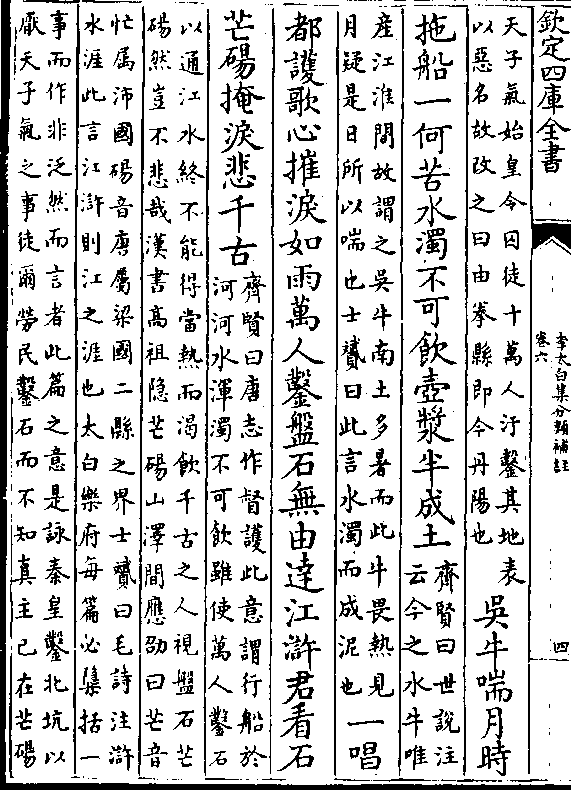 欽定四庫全書
李太白集分類補註
卷六
四
天子氣始皇令囚徒十萬人汙鑿其地表
以惡名故改之曰由拳縣即今丹陽也
吳牛喘月時
拖船一何苦水濁不可飲壺漿半成土
齊賢曰世說注
云今之水牛唯
產江淮間故謂之吳牛南土多暑而此牛畏熱見
月疑是日所以喘也士贇曰此言水濁而成泥也
一唱
都護歌心摧淚如雨萬人鑿盤石無由達江滸君看石
芒碭掩淚悲千古
齊賢曰唐志作督護此意謂行船於
河河水渾濁不可飲雖使萬人鑿石
以通江水終不能得當熱而渴飲千古之人視盤石芒
碭然豈不悲哉漢書高祖隠芒碭山澤間應劭曰芒音
忙屬沛國碭音唐屬梁國二縣之界士贇曰毛詩注滸
水涯此言江滸則江之涯也太白樂府每篇必檃括一
事而作非泛然而言者此篇之意是詠秦皇鑿北坑以
厭天子氣之事徒爾勞民鑿石而不知真主已在芒碭